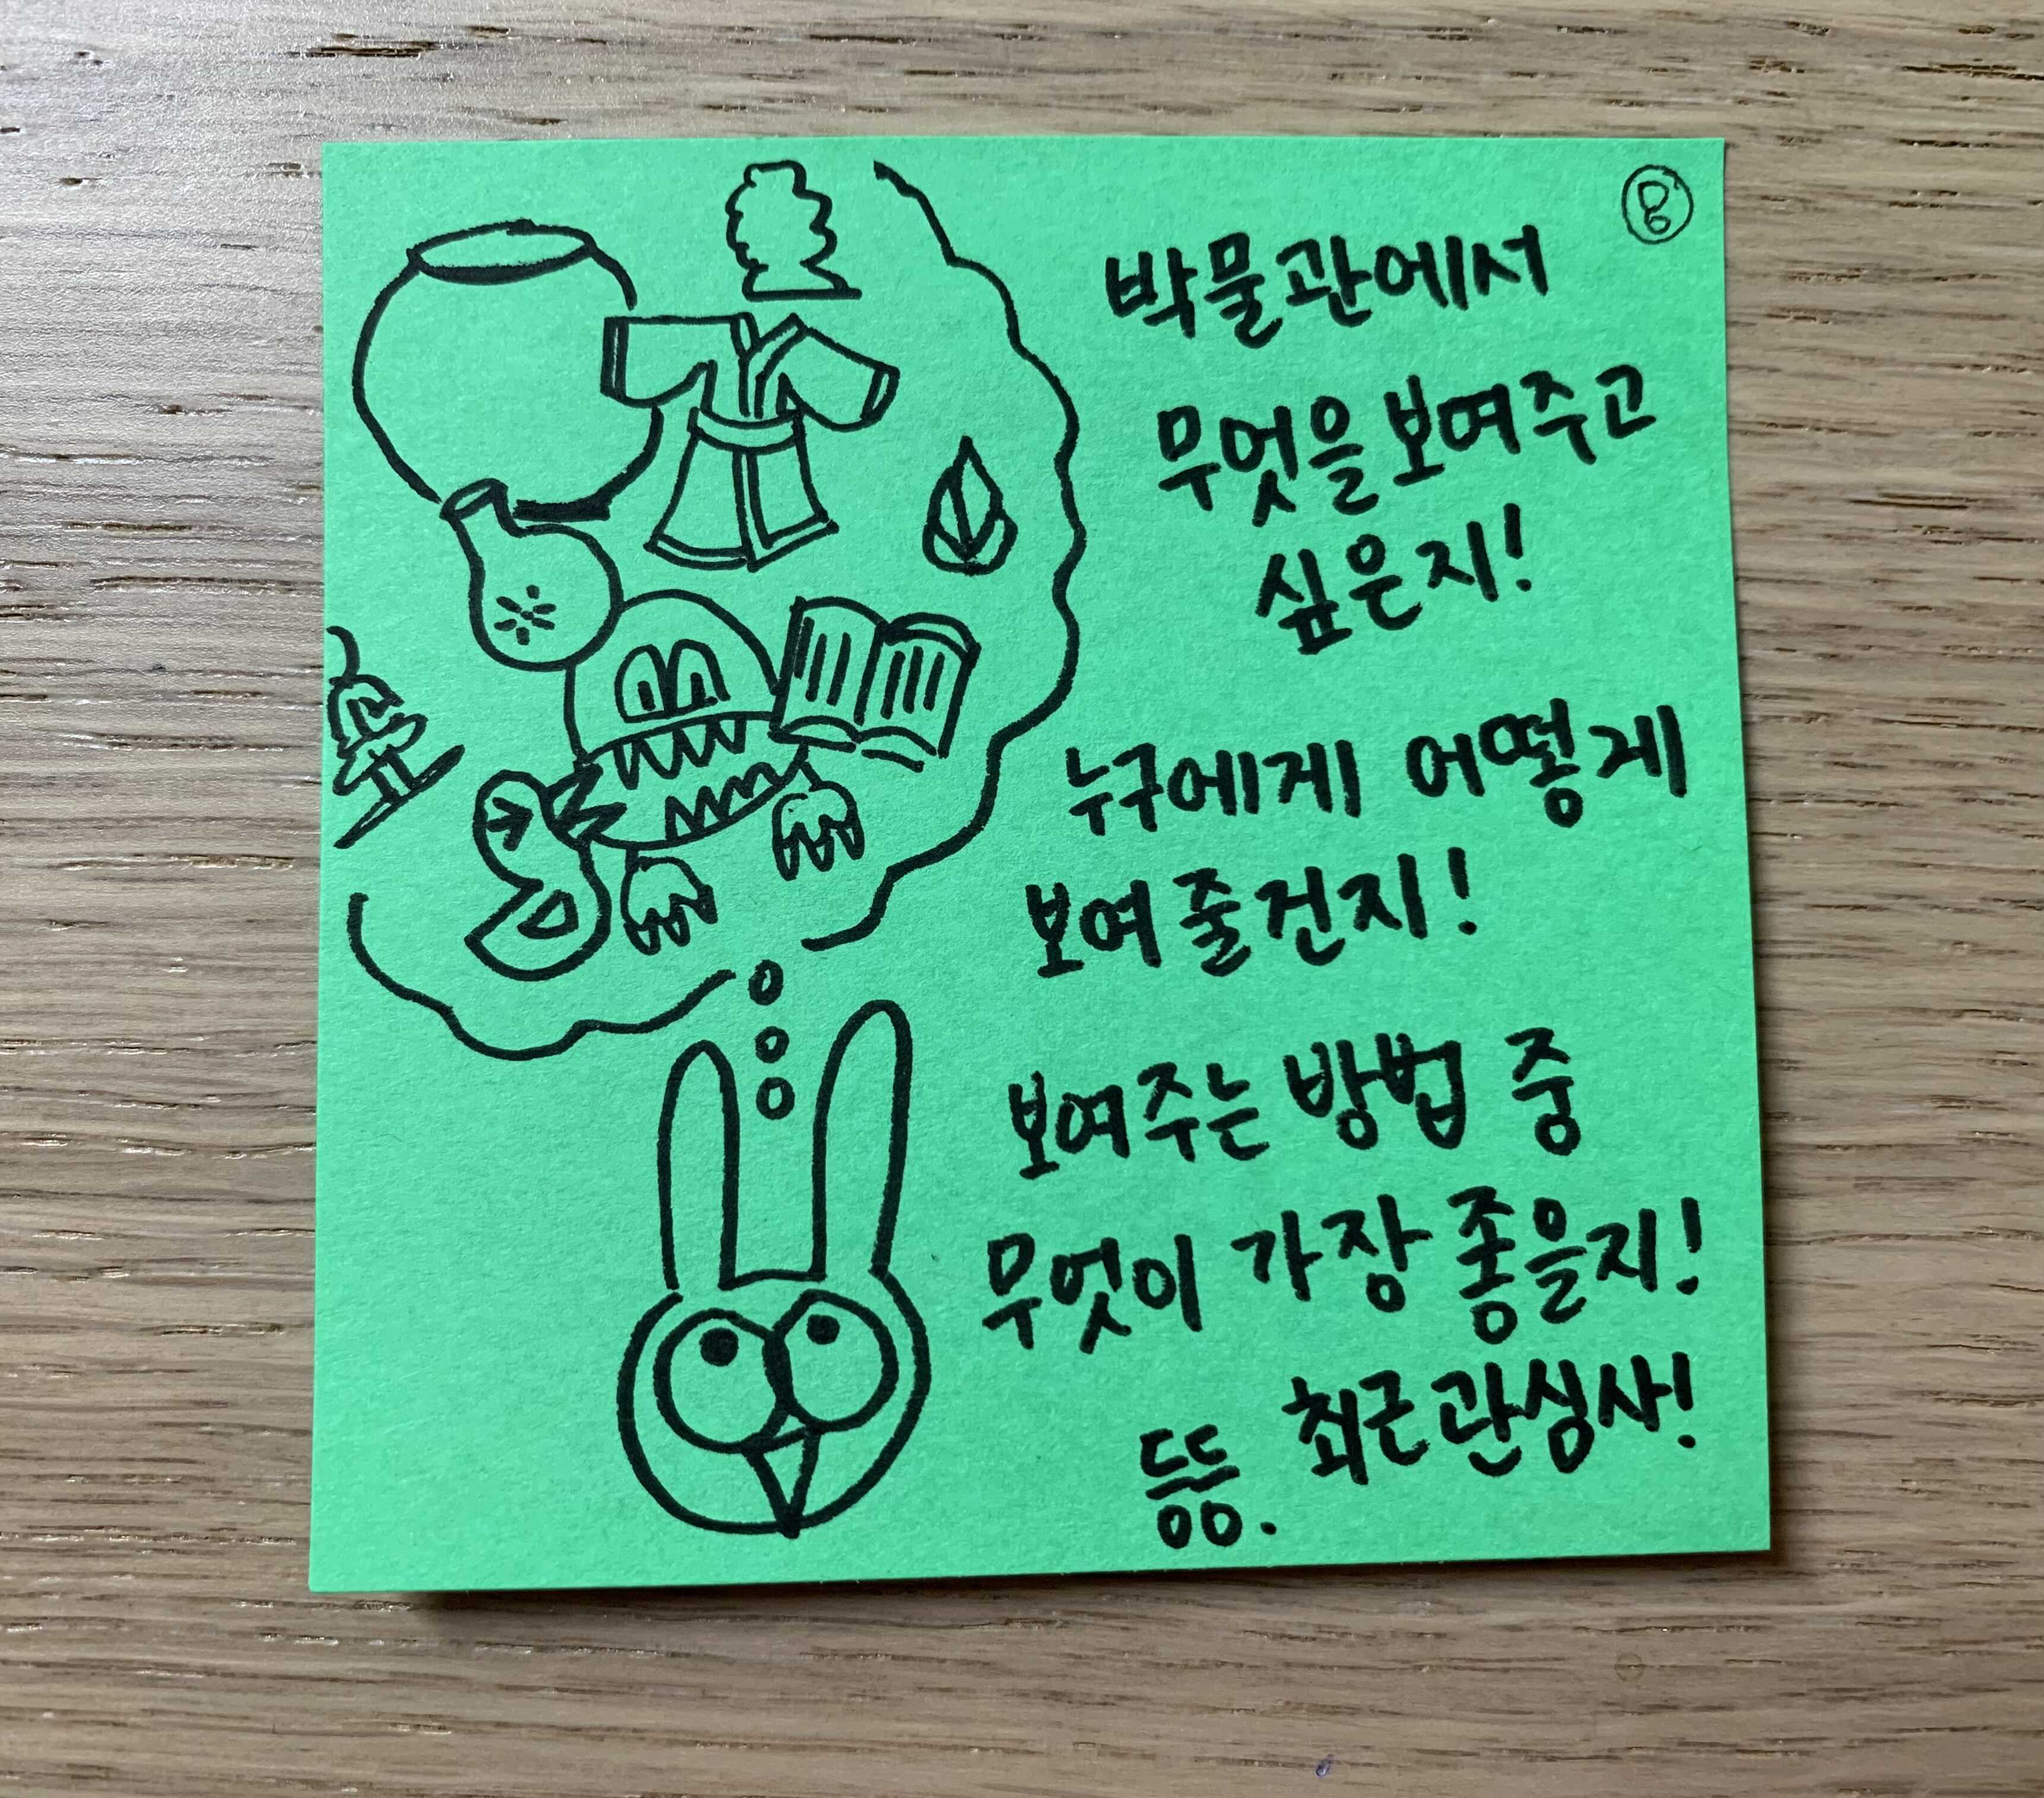 박물관에서
무엇을 보여주고
싶은지!
누구에게 어떻게
보여줄건지!
보여주는 방법 중
무엇이 가장 좋을지!
등등. 최근관심사!